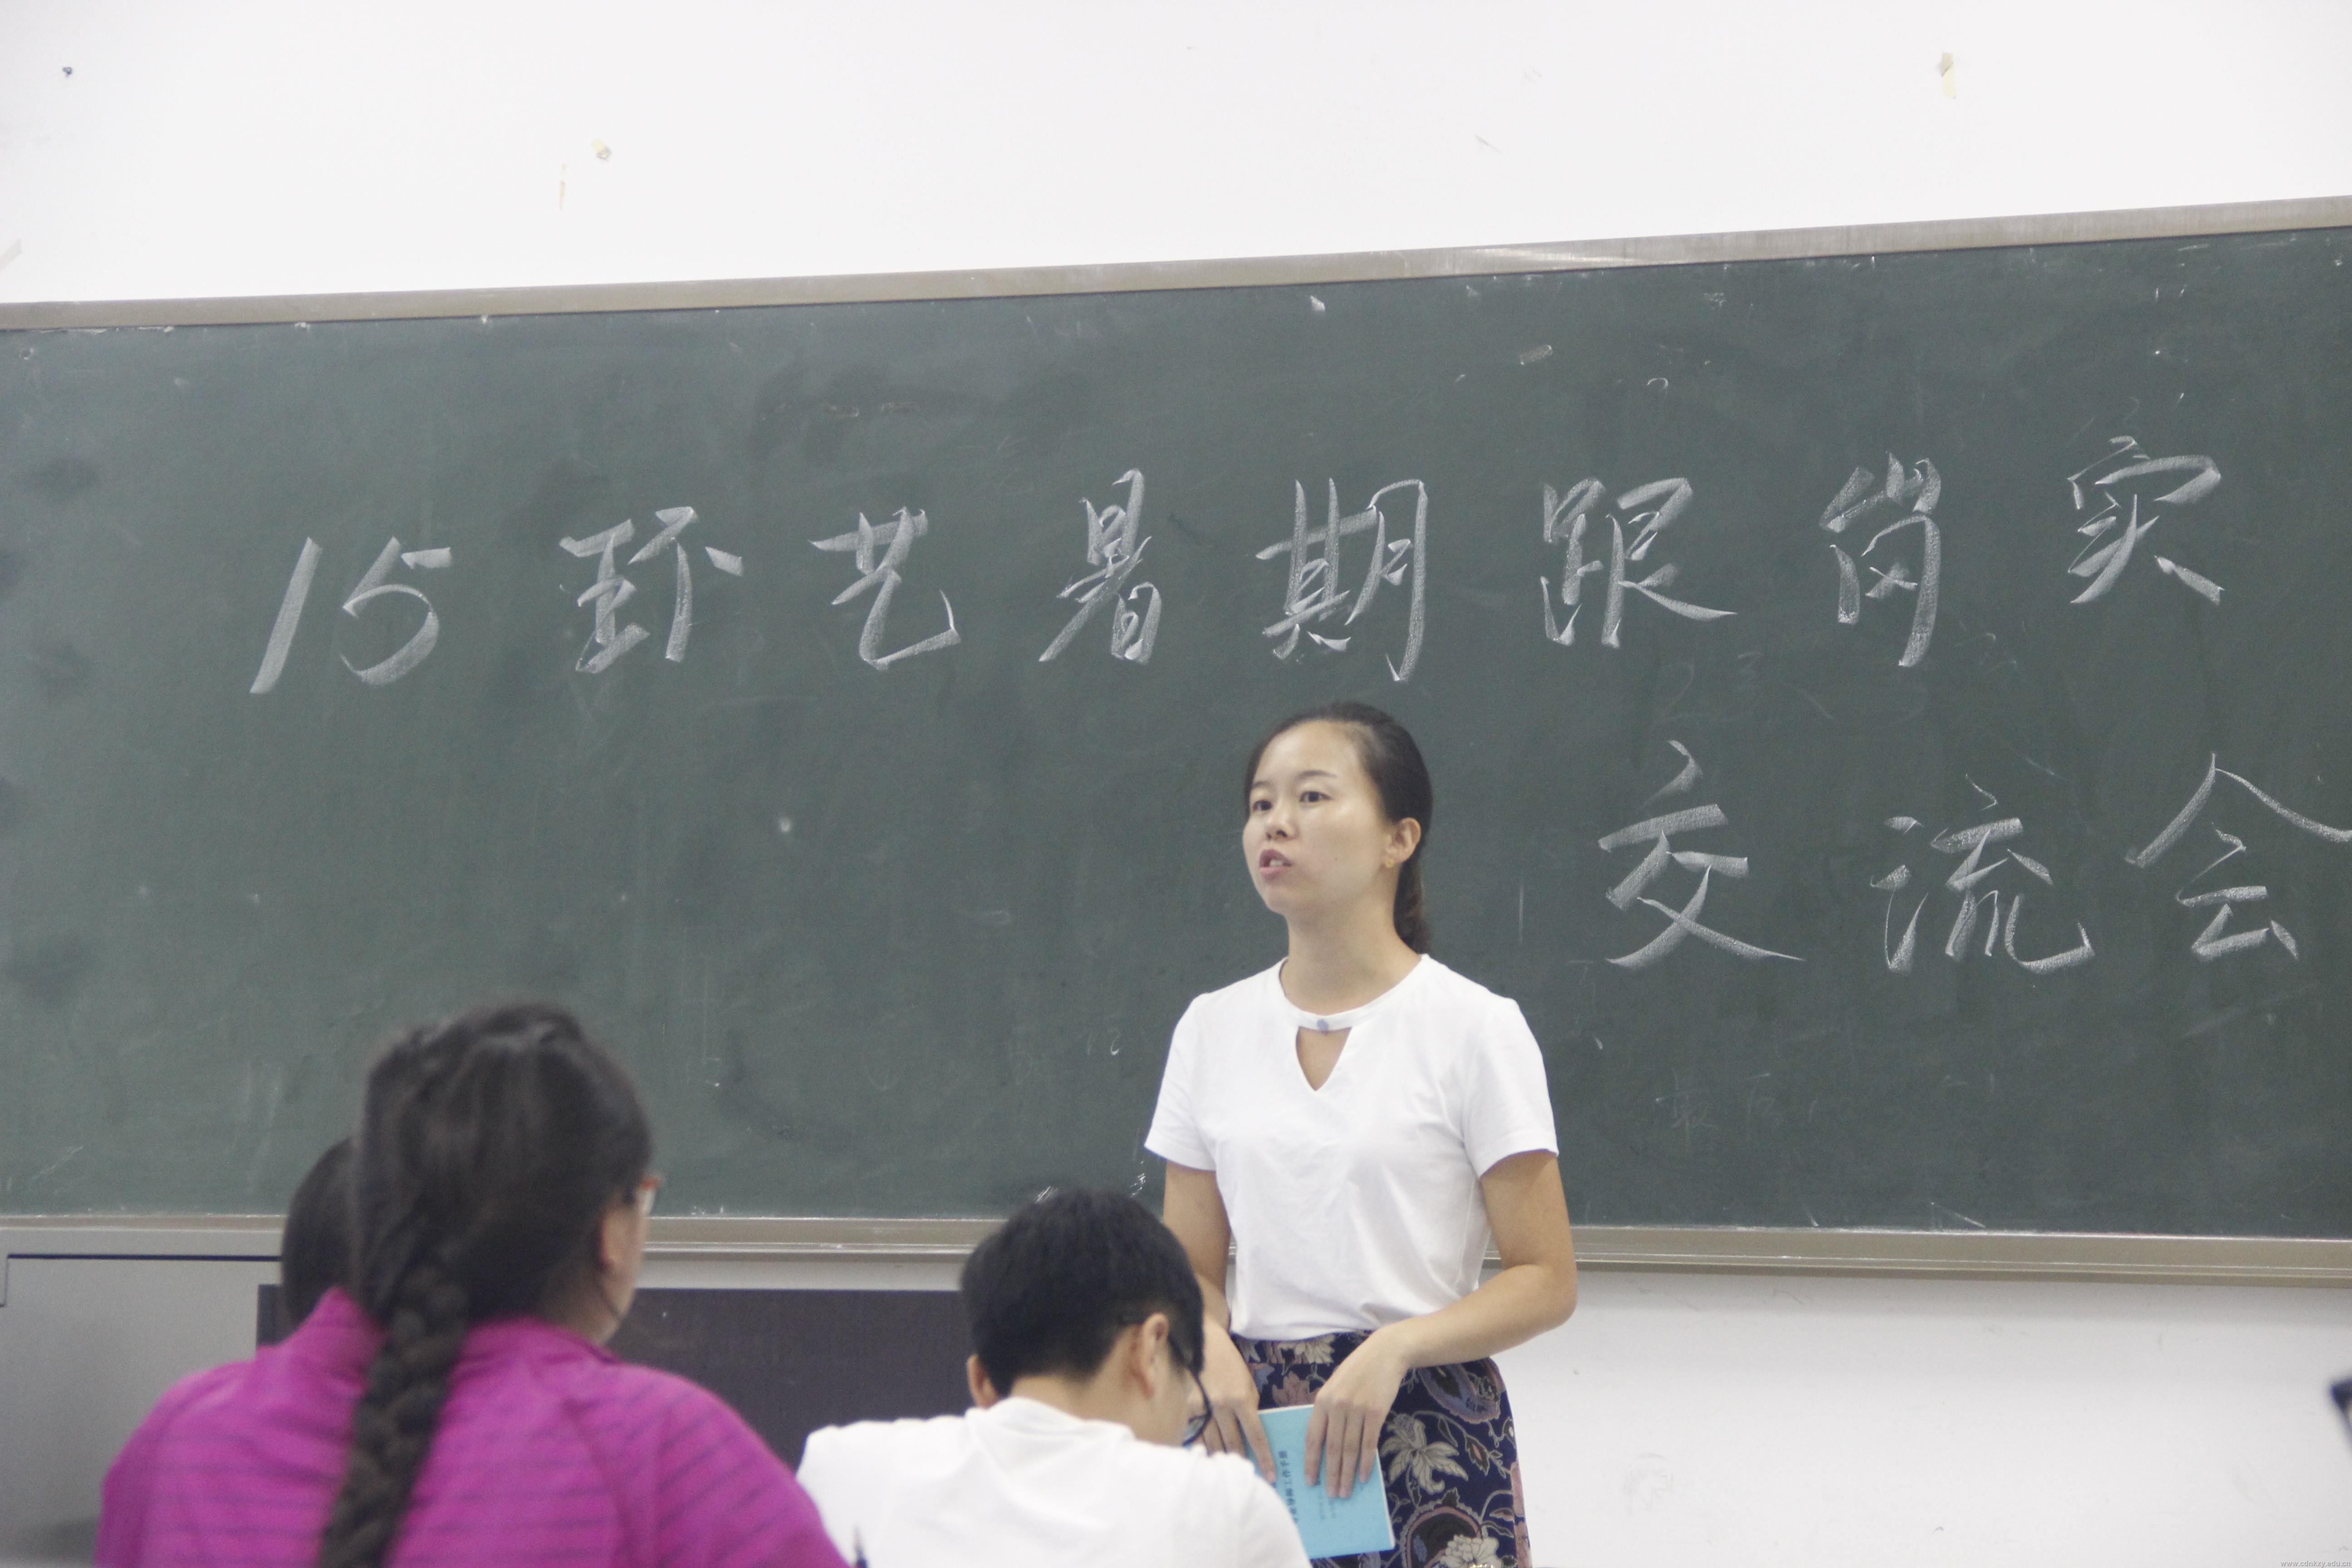 15环艺暑期跟岗实
交流会
www.cdnkxy.edu.cn